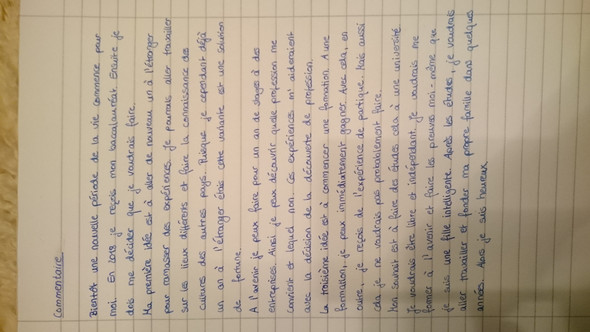 Commentaire
Bientôt une nouvelle période de la vie commence pour
moi. En 2019 je reçois mon baccalauréat. Ensuite je
dois me décider que je voudrais faire.
Ma première idée est à aller de nouveau un à l'étranger
pour ramasser des expériences. Je pourrais aller travailler
sur les lieux différents et faire la connaissance des
cultures des autres pays. Puisque je cependant déjà
un an à l'étranger étais cette variante est une solution
de fortune.
A l'avenir je peux faire pour un an de stages à des
entreprises. Ainsi je peux découvrir quelle profession me
convient et lequel non. Ces expériences m'aideraient
avec la décision de la découverte de profession.
La troisième idée est à commencer une formation. A une
formation, je peux immédiatement gagner. Avec cela, en
outre, je reçois de l'expérience de partique. Mais aussi
cela je ne voudrais pas probablement faire.
Mon souhait est à faire des études cela à une université.
Je voudrais être libre et indépendant. Je voudrais me
former à l'avenir et faire les preuves moi-même que
je suis une fille intelligente. Après les études, je voudrais
aller travailler et fonder ma propre famille dans quelques
années. Alors je suis heureux.